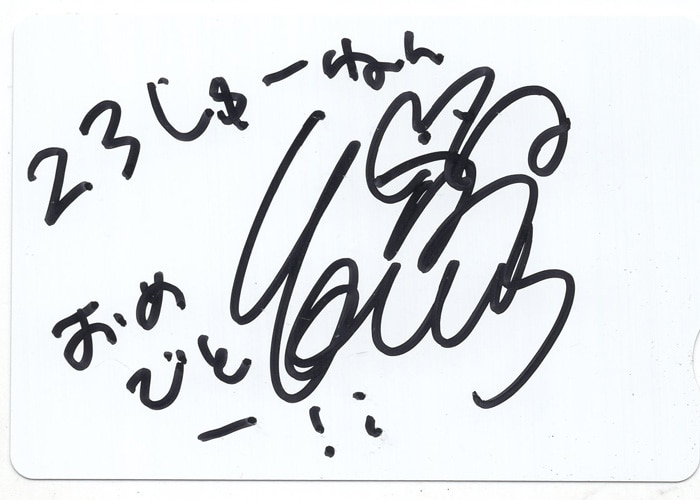 23じゅーねん
おめ
でと
ー!!